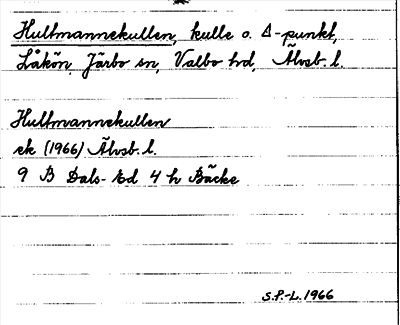 Hultmannekullen, kulle o. Δ-punkt,
Låkön, Järbo sn, Valbo hd, Älvsb. l.
Hultmannekullen
ek (1966) Älvsb. l.
9 B Dals-Ed 4 h Bäcke
S.F.-L. 1966